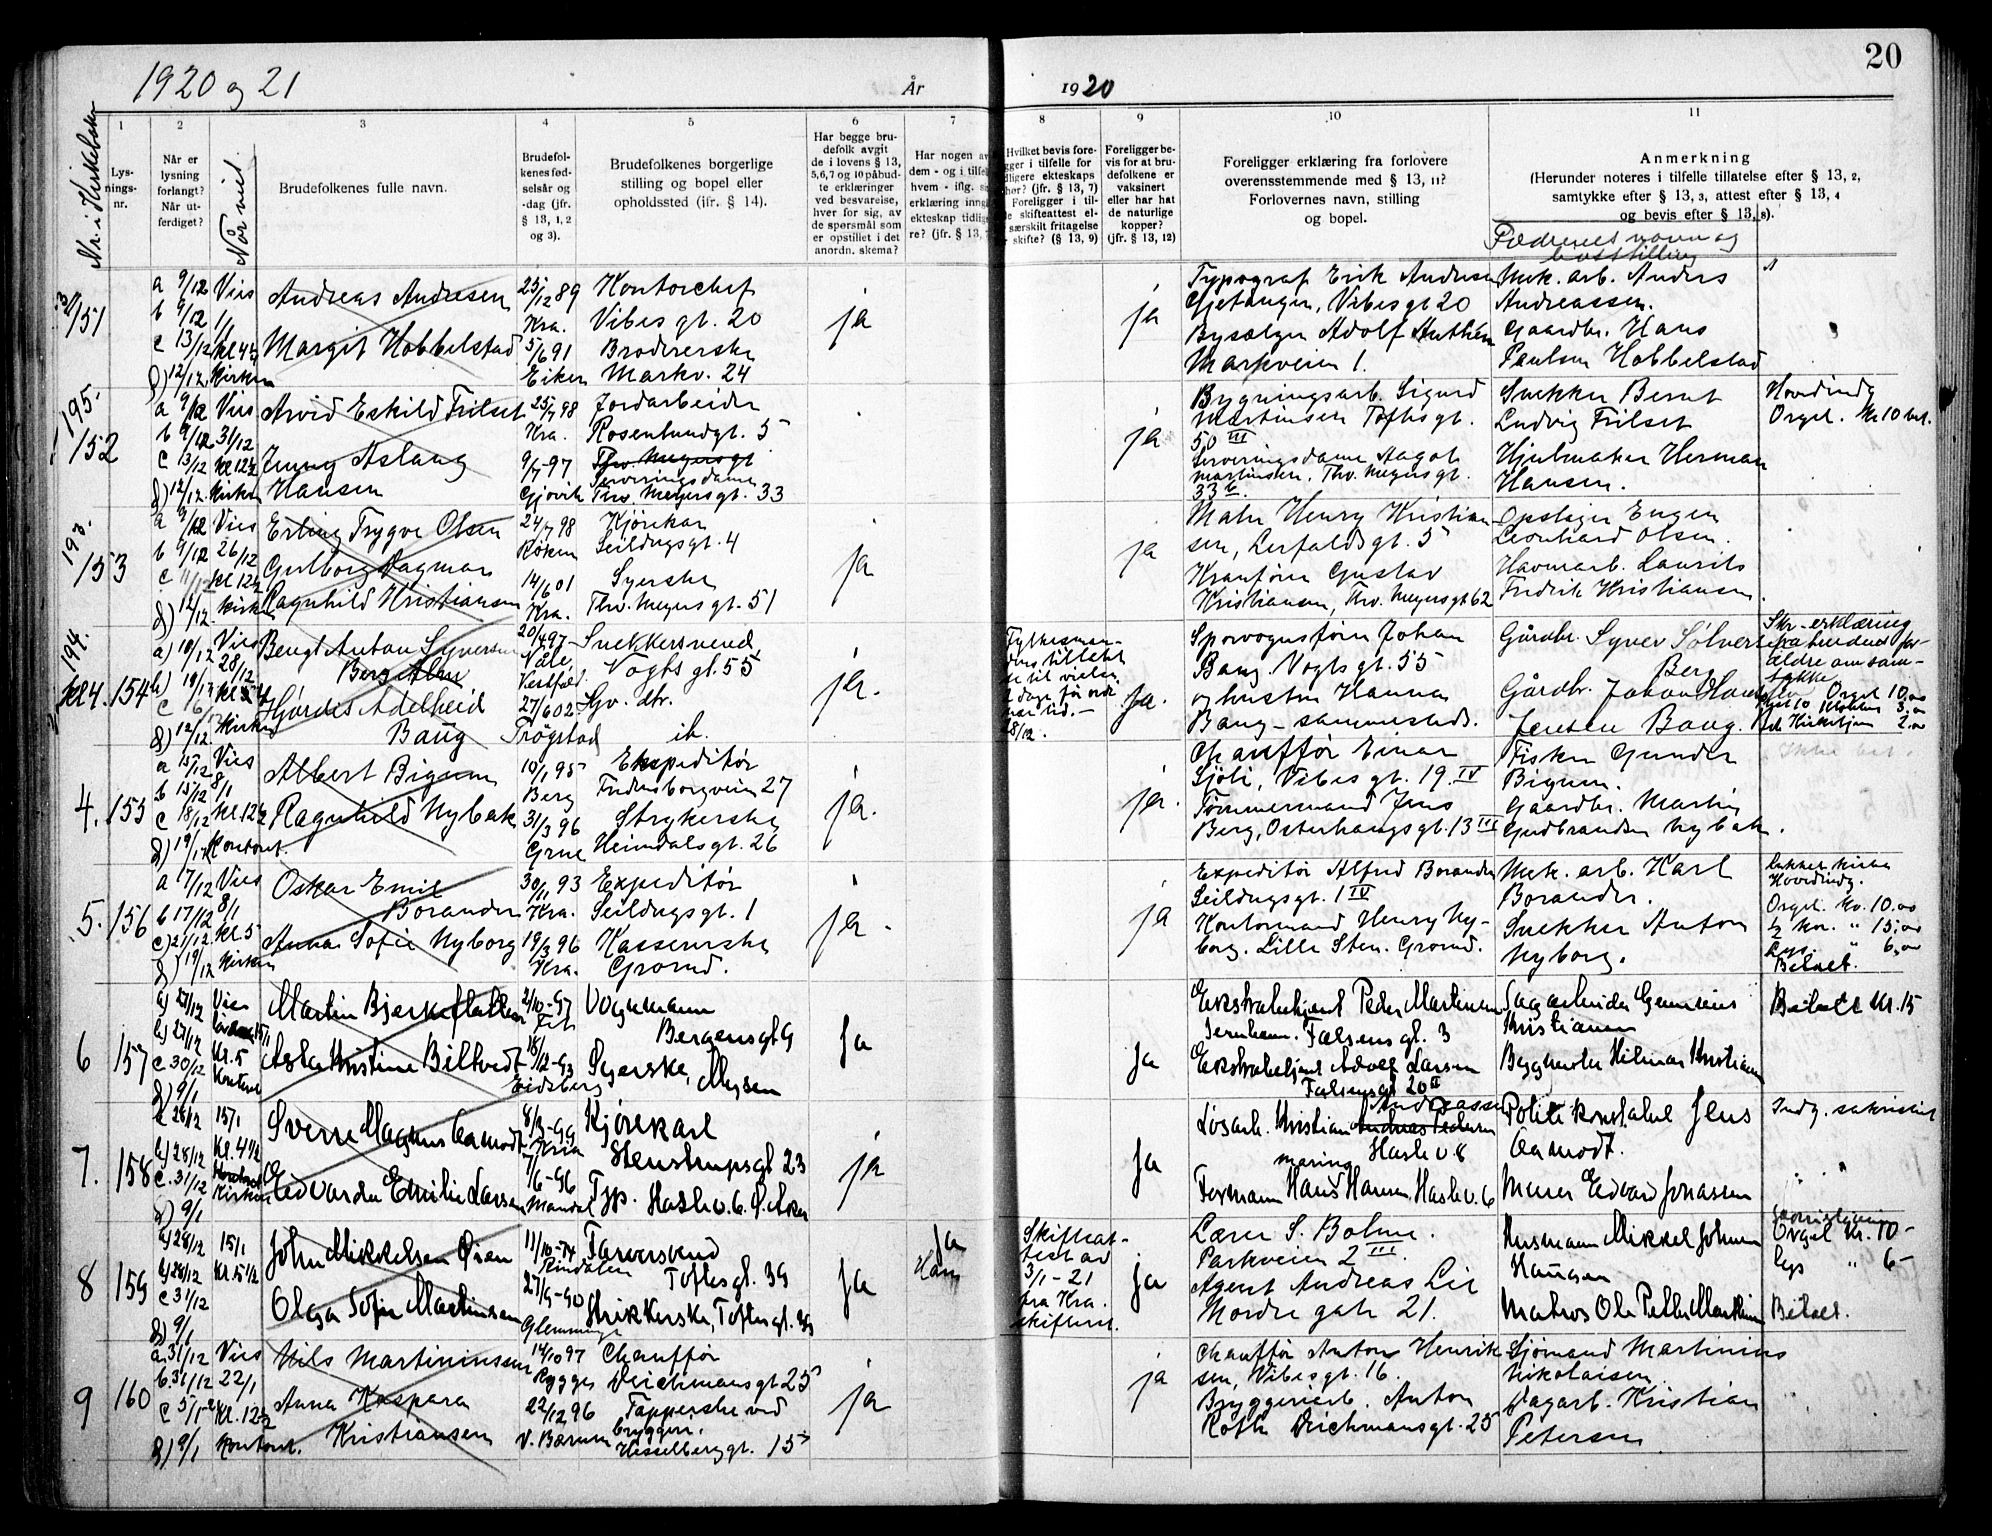 1920 og 21
År
1920
20
Nr. i Kirkeboken
1
Lys-
nings-
nr.
2
Når er
lysning
forlangt?
Når ut-
ferdiget?
Når viet
3
Brudefolkenes fulle navn.
4
Brudefol-
kenes fød-
selsår og
-dag (jfr.
§ 13, 1, 2
og 3).
5
Brudefolkenes borgerlige
stilling og bopel eller
opholdssted (jfr. § 14).
6
Har begge bru-
defolk avgit
de i lovens § 13,
5,6,7 og 10 påbud-
te erklæringer
ved besvarelse,
hver for sig, av
de spørsmål som
er opstillet i det
anordn. skema?
7
Har nogen av
dem - og i tilfel
hvem - iflg. s
erklæring inng
ekteskap tidlig
re? (jfr. § 13, 7
8
Hvilket bevis fore-
gger i tilfelle for
dligere ekteskaps
hør? (jfr. § 13, 7)
Foreligger i til-
le skifteattest el-
særskilt fritagelse
skifte? (§ 13, 9)
9
Foreligger be-
vis for at bru-
defolkene er
vaksinert
eller har hat
de naturlige
kopper?
(jfr. § 13, 12)
10
Foreligger erklæring fra forlovere
overensstemmende med § 13, 11?
Forlovernes navn, stilling
og bopel.
11
Anmerkning
(Herunder noteres i tilfelle tillatelse efter § 13, 2,
samtykke efter § 13, 3, attest efter § 13, 4
og bevis efter § 13, 8).
Fædrenes navn og
livsstilling
151
a 9/12
b 9/12
c 13/12
d) 12/12
Vies
1/1
kl 4½
Kirken
Andreas Andresen
Margit Hobbelstad
25/12 89
Kra.
5/6 91
Eiker
Kontorchef
Vibes gt. 20
Brodererske
Markv. 24
ja
ja
Typograf Erik Andresen
Gjetanger, Vibesgt 20
Bysælger Adolf Anthon
Markveien 1.
Mek. arb. Anders
Andreassen.
Gaardbr. Hans
Paulsen Hobbelstad
195.
152
a 9/12
b 9/12
c 13/12
d) 12/12
Vies
31/12
kl 12½
Kirken
Arvid Eskild Frilset
Jenny Aslaug
Hansen
25/7 98
Kra.
9/7-97
Gjøvik
Jordarbeider
Rosenlundgt. 5
Thv. Meyersgt
Serveringsdame
Thv. Meyersgt. 33
ja
Bygningsarb. Sigurd
Martinsen Toftesgt.
50 III
Serveringsdame Aagot
Martinsen. Thv. Meyersgt.
33 b
Snekker Bernt
Ludvig Frilset
Hjulmaker Herman
Hansen.
Hovedindg
Orgel. Kr 10 bet.
193.
153
a 9/12
b 9/12
c 11/12
d) 12/12.
Vies
26/12
kl 12½
Kirken
Erling Trygve Olsen
Gulborg Dagmar
Ragnhild Kristiansen
24/7 98
Røken
14/6 01
Kra.
Kjørekar
Seildugsgt. 4
Syerske
Thv. Meyers gt. 51
ja
ja
Maler Henry Kristian-
sen, Lerfaldsgt. 5
Kranfører Gustav
Kristiansen, Thv. Meyersgt 62
Opsiger Eugen
Leonhard Olsen.
Havnearb. Laurits
Fredrik Kristiansen.
194.
kl 4. 154
a) 10/12
d) 12/12
Vies
28/12
Kirken
Bengt Anton Syversen
Berg
Hjørdis Adelheid
Baug
20/4 97-
Våle,
Vestfold.
27/6 02
Trøgstad
Snekkersvend
Vogts gt. 55
Gv. dtr.
ib.
ja.
8/12.
Ja.
Sporvognsfører Johan
Baug. Vogts gt. 55
og hustru Hanna
Baug - sammesteds.
Gårdbr. Syver Sølvers
Berg
Gårdbr. Johan Hans
Jensen Baug.
Skr. erklæring
fra brudens for-
ældre om sam-
tykke
Orgel 10,00
Klokken 3,00
Kirketjen 2,00
4. 155
a 15/12
b 15/12
c 18/12
d) 19/12
Vies
8/1
kl 12½
Kontoret.
Albert Bignum
Ragnhild Nybak
10/1 95
Berg
31/3 96
Grue
Ekspeditør
Fredensborgveien 27
Strykerske
Heimdalsgt. 26
ja.
ja.
Chauffør Einar
Sjøli, Vibesgt. 19. IV
Tømmermand Jens
Berg, Osterhausgt. 13 III
Fisker Gunder
Bignum.
Gaardbr. Martin
Gudbrandsen Nybak.
Ikke bet.
5. 156
a 17/12
b 17/12
c) 21/12.
d) 19/12
Vies
8/1
kl. 5
Kirken
Oskar Emil
Borander
Anna Sofie Nyborg
30/1 93
Kra.
19/3 96
Kra.
Expeditør
Seildugsgt. 1
Kassererske
Grorud.
ja.
ja
Expeditør Alfred Borander
Seildugsgt. 1 IV
Kontormand Henry Ny-
borg. Lille Sten. Grorud.
Mek. arb. Karl
Borander.
Snekker Anton
Nyborg.
Lukket kirke
Hovedindg.
Orgel. Kr. 10.00
½ Kor. " 15,00
Lys. " 6,00
Betalt.
6 157
a) 27/12
b) 27/12
c 30/12
d) 9/1
Vies
15/1
Kl. 5
Kontoret
Martin Bjerke
Asta Kristine Biltvedt
2/10-97
18/12-93
Eidsberg
Vognmann
Bergensgt 9
Syerske, Mysen
Ja
Ja
Ekstrabetjent Peder Martinsen
Jernbanen. Falsens gt. 3
Ekstrabetjent Adolf Larsen
Falsensgt 20 II
Sagarbeider
Kristiansen
Byggmester Hilmar Kristiansen
Betalt Kr. 15
7. 158
a 28/12
b) 28/12
c. 31/12
d) 9/1
15/1
Kl. 4½
Kontoret
Kirken
Sverre Magnus Aamodt
Edvarda Emilie Larsen
8/3-99
Kria
7/6-96
Mandal
Kjørekarl
Stenstrupsgt 23
Typ. Haslev. 6. Ø. Aker
ja
Ja
Løsarb. Kristian Andreas Pedersen
Andreassen
Haslev. 8
Formann Hans Hansen, Haslev. 6
Politikonstabel Jens
Aamodt.
Murer Edvard Jonassen
Indg. sakristiet
8 159
a) 28/12
b) 28/12
c 31/12
d) 9/1
15/1
Kl. 5½
John Mikkelsen Øien
Olga Sofie Martinsen
11/10-74
Rindalen
27/9-90
Glemminge
Farversvend
Toftesgt. 39
Strikkerske, Toftesgt. 39
Ja
Ja
Ham
Skifteat-
test av
3/1-21
fra Kra.
skifteret.
ja
Lærer S. Bolme.
Parkveien 2 III.
Agent Andreas Lie
Nordre gate 21.
Husmann Mikkel Johnsen
Haugen
Matros Ole Petter Martin
Orgel Kr. 10-
Lys " 6-
Betalt.
9 160
a. 31/12
b. 31/12
c 5/1-21
d) 9/1
Vies
22/1
Kl. 12½
Kontoret.
Nils Martininssen
Anna Kaspara
Kristiansen
14/10 97
Rygge
22/12 96
V. Bærum
Chauffør
Deichmansgt 25
Tapperske ved
bryggeri.
Hesselberggt. 15
ja
ja
Chauffør Anton Henrik-
sen, Vibesgt. 16.
Bryggeriarb. Anton
Roth Deichmansgt. 25
Sjømand Martinius
Nikolaisen.
Dagarb. Kristian
Petersen